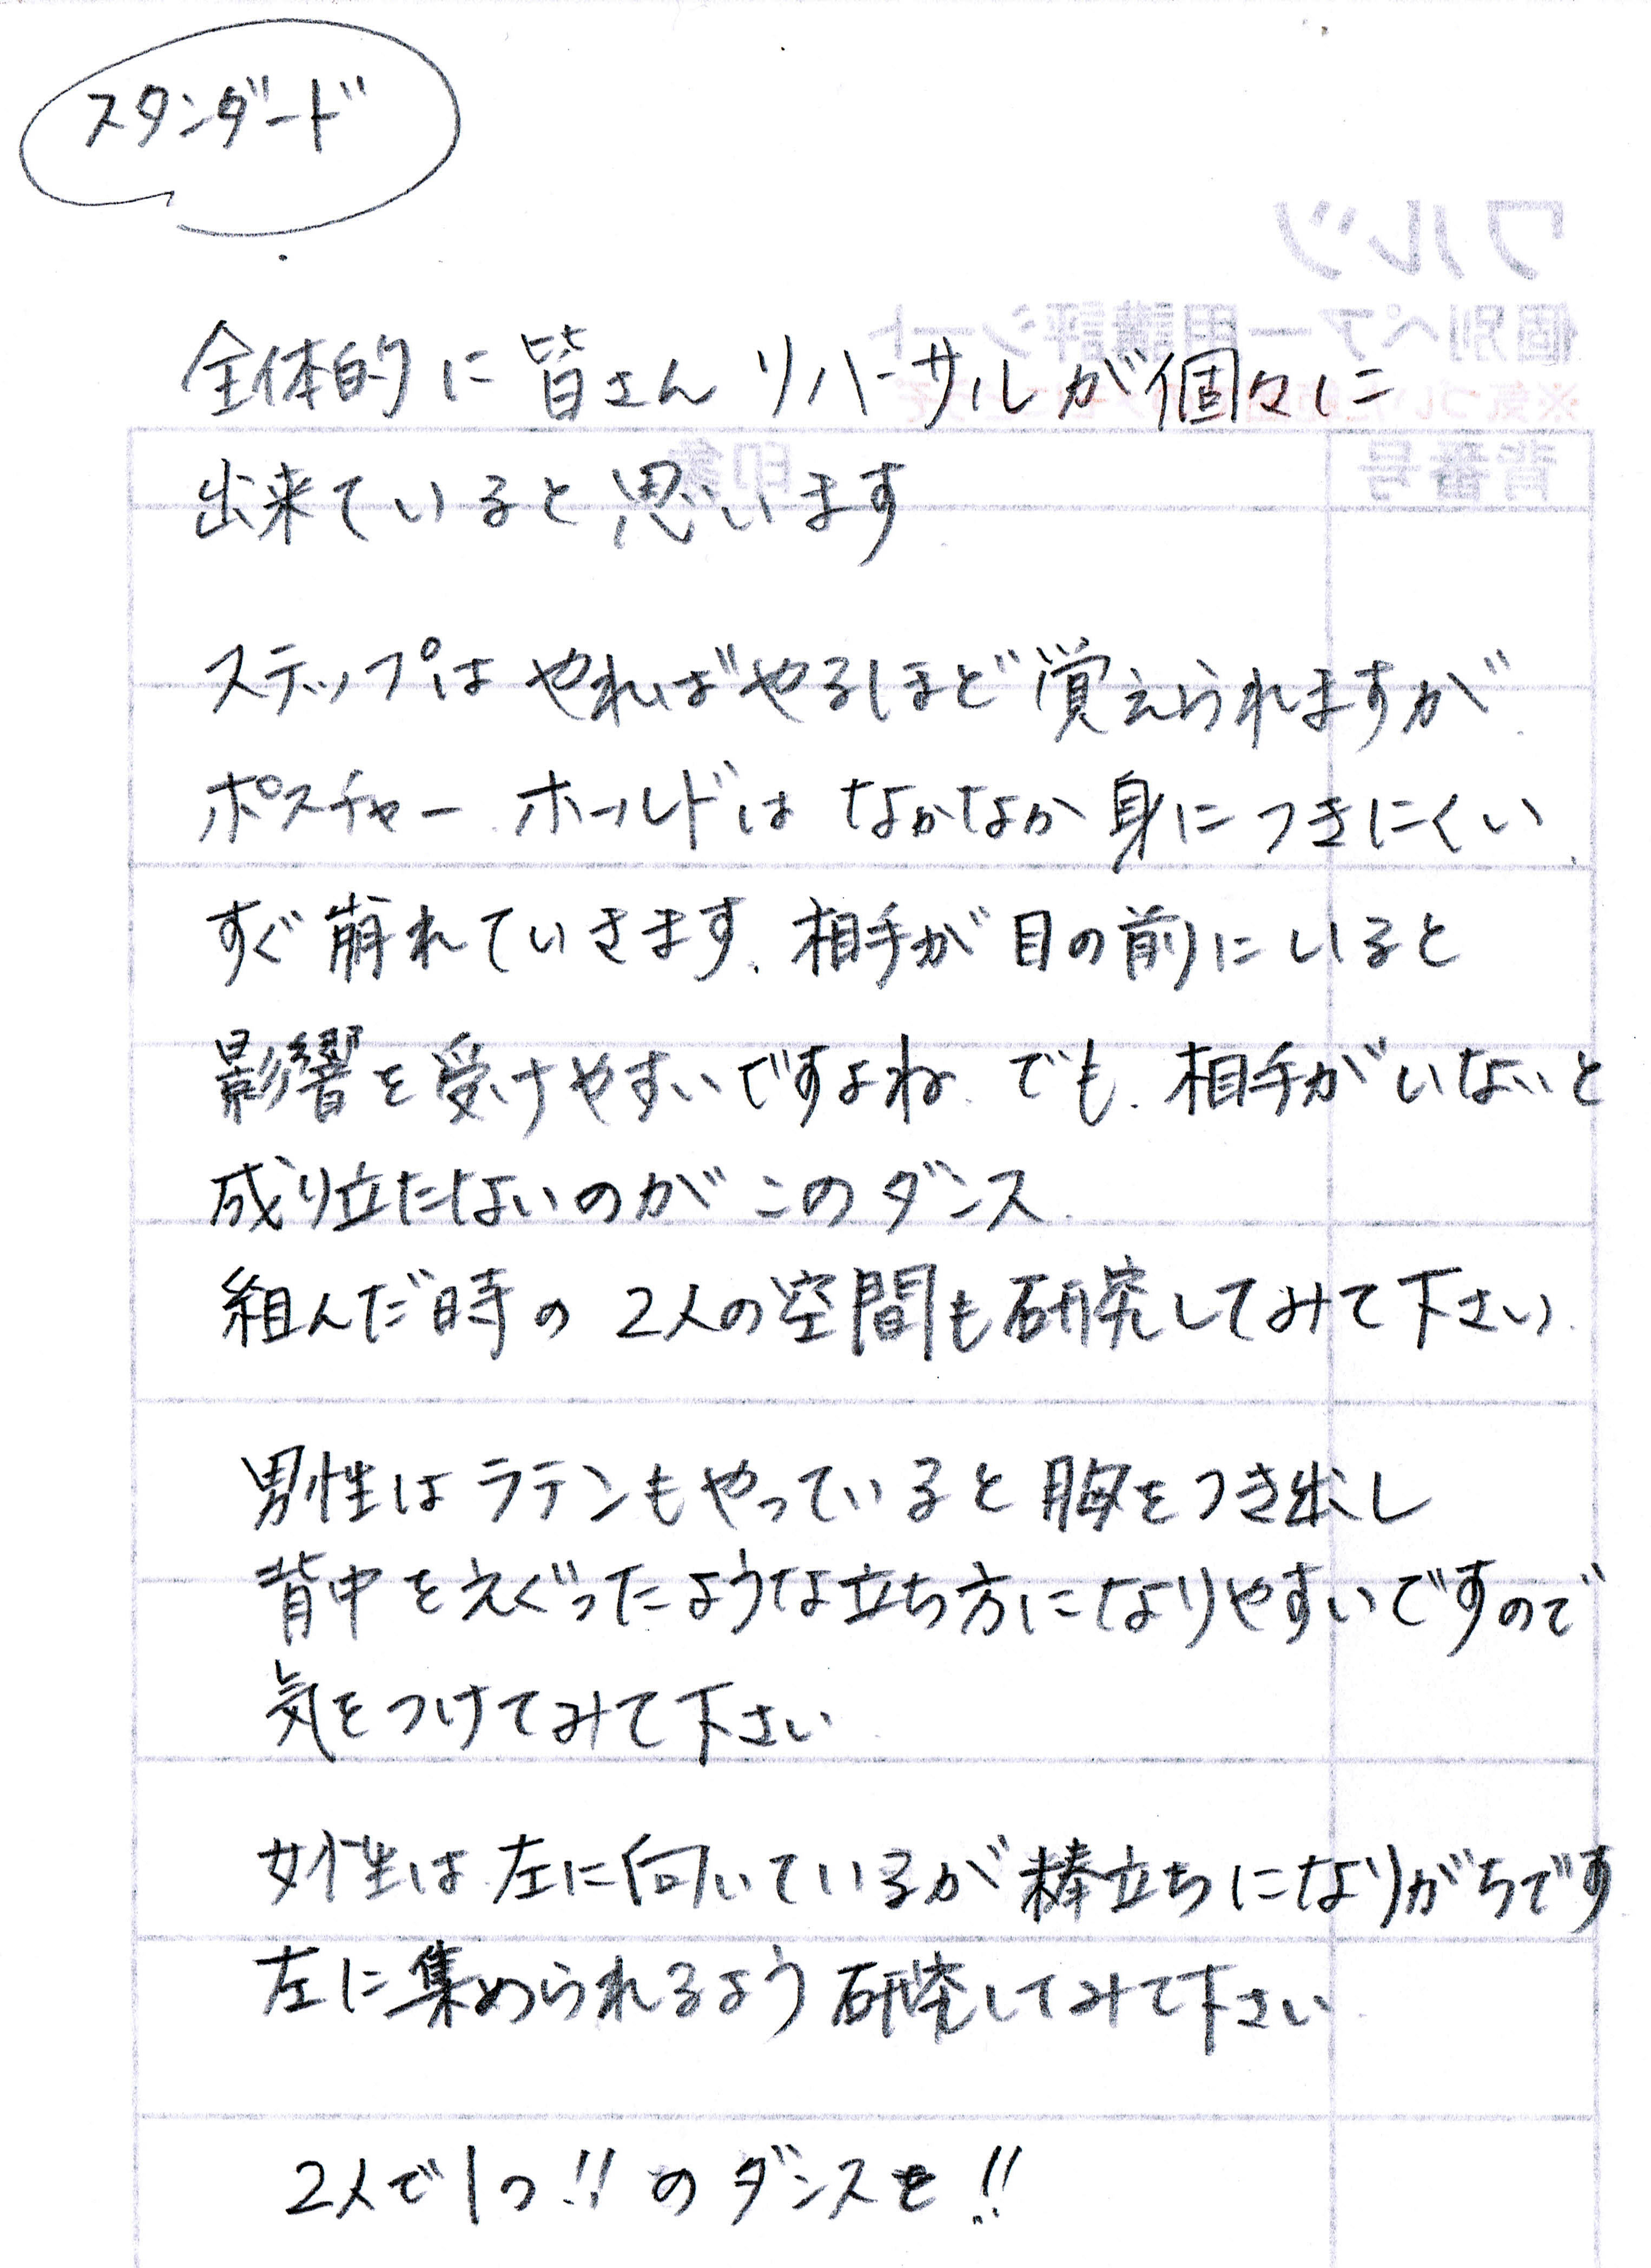 スタンダード
ワルツ
個別ペアー用講評シート
背番号 印象
全体的に皆さんリハーサルが個々に
出来ていると思います
ステップはやればやるほど覚えられますが、
ポスチャー、ホールドはなかなか身につきにくい、
すぐ崩れていきます、相手が目の前にいると
影響を受けやすいですよね、でも、相手がいないと
成り立たないのがこのダンス、
組んだ時の2人の空間も研究してみて下さい、
男性はラテンもやっていると胸をつき出し
背中をえぐったような立ち方になりやすいですので
気をつけてみて下さい
女性は左に向いているが棒立ちになりがちです
左に集められるよう研究してみて下さい
2人で1つ!!のダンスを!!